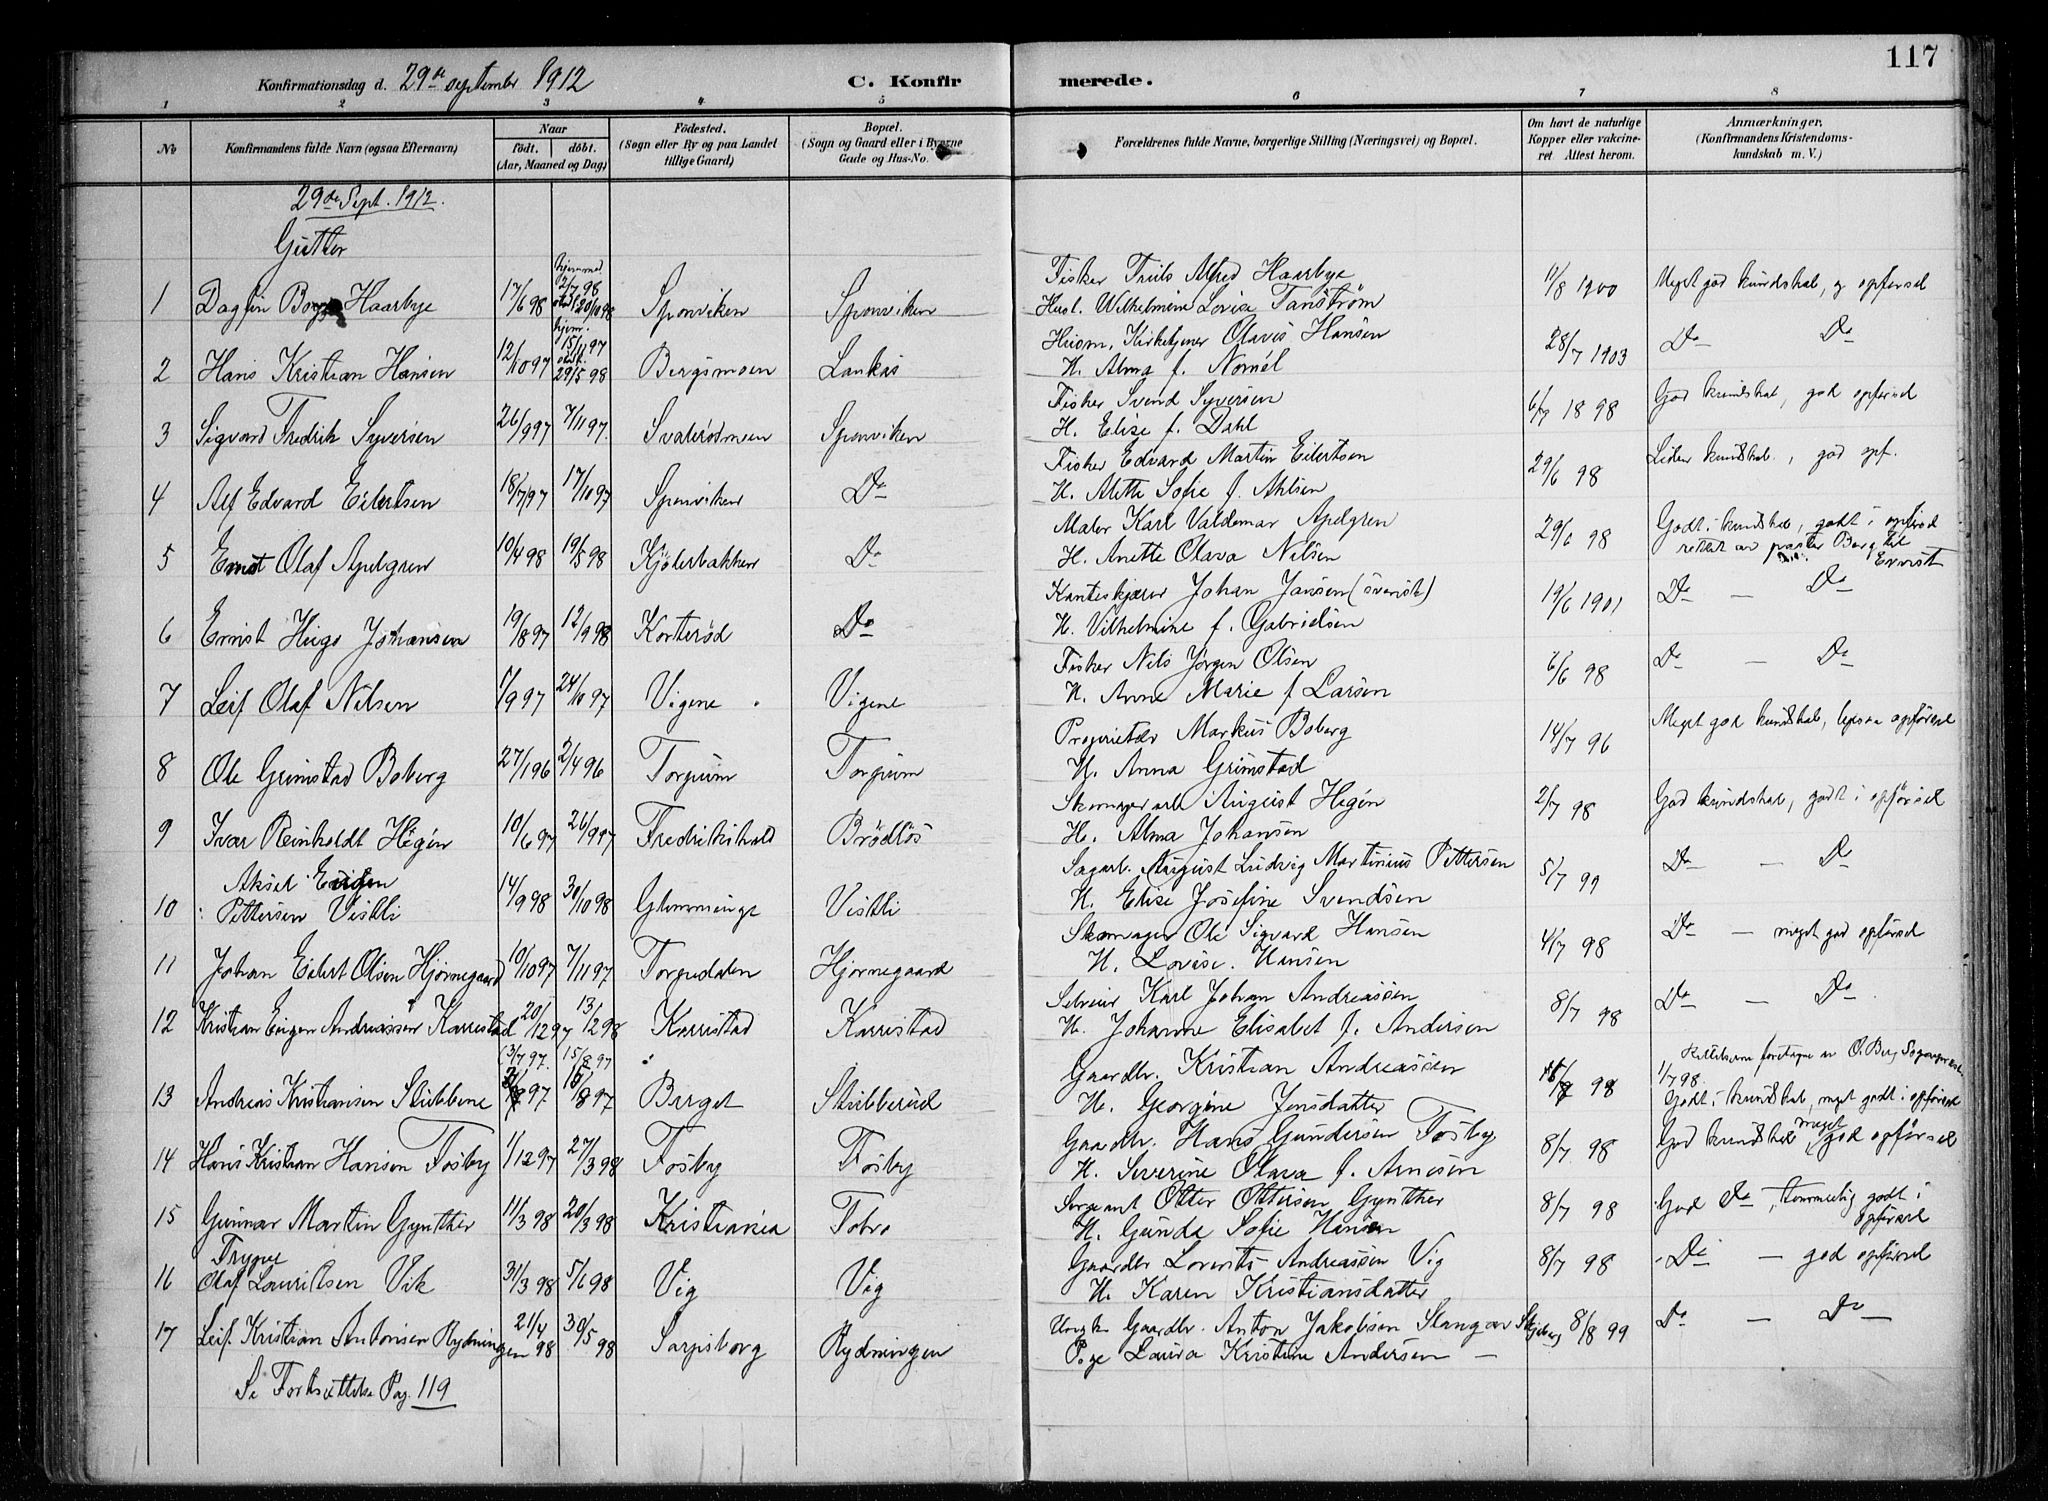 117
Konfirmationsdag d. 29de september 1912 C. Konfirmerede.
1 2 3 4 5 6 7 8
No
Konfirmandens fulde Navn (ogsaa Efternavn)
Naar
födt. döbt.
(Aar, Maaned og Dag)
Födested.
(Sogn eller By og paa Landet
tillige Gaard)
Bopæl.
(Sogn og Gaard eller i Byerne
Gade og Hus-No.
Forældrenes fulde Navne, borgerlige Stilling (Næringsvei) og Bopæl.
Om havt de naturlige
Kopper eller vakcine-
ret. Attest herom.
Anmærkninger.
(Konfirmandens Kristendoms-
kundskab m. V.)
29de Sept. 1912.
Gutter
1 Dagfin Haarbye 17/6 98 hjemmed. 2/7 98 20/10 98 Sponviken Sponviken
Fisker Truls Alfred Haarbye 11/8 1900 Meget god kundskab, g opførsel
Hust. Wilhelmine Lovise Tanström
2 Hans Kristian Hansen 12/10 97 hjem. 15/11 97 29/5 98 Bergsmoen Lankås
Husm. Kirketjener Olavus Hansen 28/7 1903 Do Do
H. Alma f.
3 Sigvard Fredrik Syversen 26/9 97 7/11 97. Svalerödmoen Sponviken
Fisker Svend Syversen 6/7 1898 God kundskab, god opførsel
H. Elise f. Dahl
4 Alf Edvard Eilertsen 18/7 97 17/10 97 Sponviken Do
Fisker Edvard Martin Eilertsen 29/6 98 Liden kundskab, god opf.
H. Alette Sofie f. Ahlsen
5 Ernst Olaf Apelgren 10/4 98 19/5 98 Kjölerbakken Do
Maler Karl Valdemar Apelgren 29/6 98 Godt i kundskab, godt i opførsel
rettet av pastor Berg til Ernst
H. Anette Olava Nilsen
6 Ernst Hugo Johansen 19/8 97 12/9 98 Korterød Do
Johan Jansen (svensk) 19/6 1901 Do — Do
H. Vilhelmine f. Gabrielsen
7 Leif Olaf Nilsen 5/9 97 24/10 97 Vigene Vigene
Fisker Nils Jørgen Olsen 6/6 98 Do — Do
H. Anne Marie f. Larsen
8 Ole Grimstad Boberg 27/1 96 2/4 96 Torpum Torpum
Proprietær Markus Boberg 14/7 96 Meget god kundskab, ligesaa opførsel
H. Anna Grimstad
9 Ivar Reinholdt Hegén 10/6 97 26/9 97 Fredrikshald Brödlös
Skomager arb August Hegén 2/7 98 God kundskab, godt i opførsel
H. Alma Johansen
Aksel Eugen
10 Pettersen Vistli 14/9 98 30/10 98 Glemminge Vistli
Sagarb. August Ludvig Martinius Pettersen 5/7 99 Do — Do
H. Elise Josefine Svendsen
11 Johan Eilert Olsen Hjörnegaard 10/10 97 7/11 97 Torpedalen Hjörnegaard
Skomager Ole Sigvard Hansen 4/7 98 Do — meget god opførsel
H. Lovise Hansen
12 Kristian Eugen Andreassen Karrestad 20/12 97 13/2 98 Karrestad Karrestad
Selveier Karl Johan Andreassen 8/7 98 Do — Do
H. Johanne Elisabet f. Andersen
(3/7 97. 15/8 97
13 Andreas Kristiansen Stubbene 97 15/8 97 Berget Stubberud
Gaardbr. Kristian Andreassen 98 Rettelserne foretagne av O. Berg Sogneprest
1/7 98.
H. Georgine Jensdatter Godt i kundskab, meget godt i opførsel
14 Hans Kristian Hansen Fosby 1/12 97 27/3 98 Fosby Fosby
Gaardbr. Hans Gundersen Fosby 8/7 98 God kundskab, meget god opførsel
H. Severine Olava f. Arnesen
15 Gunnar Martin Gynther 11/3 98 20/3 98 Kristiania Tobro
Sergeant Otter Ottersen Gynther 8/7 98 God Do, temmelig godt i opførsel
H. Gunda Sofie Hansen
Trygve
16 Olaf Lauritsen Vik 31/3 98 5/6 98 Vig Vig
Gaardbr Lorents Andreassen Vig 8/7 98 Do — god opførsel
H. Karen Kristiansdatter
17 Leif Kristian Antonsen Rydningen 21/4 98 30/5 98 Sarpsborg Rydningen
Ungk. Gaardbr. Anton Jakobsen Slangar Skjeberg 8/8 99 Do — Do —
Pige Laura Kristine Andersen —
Se Fortsættelse Pag. 119